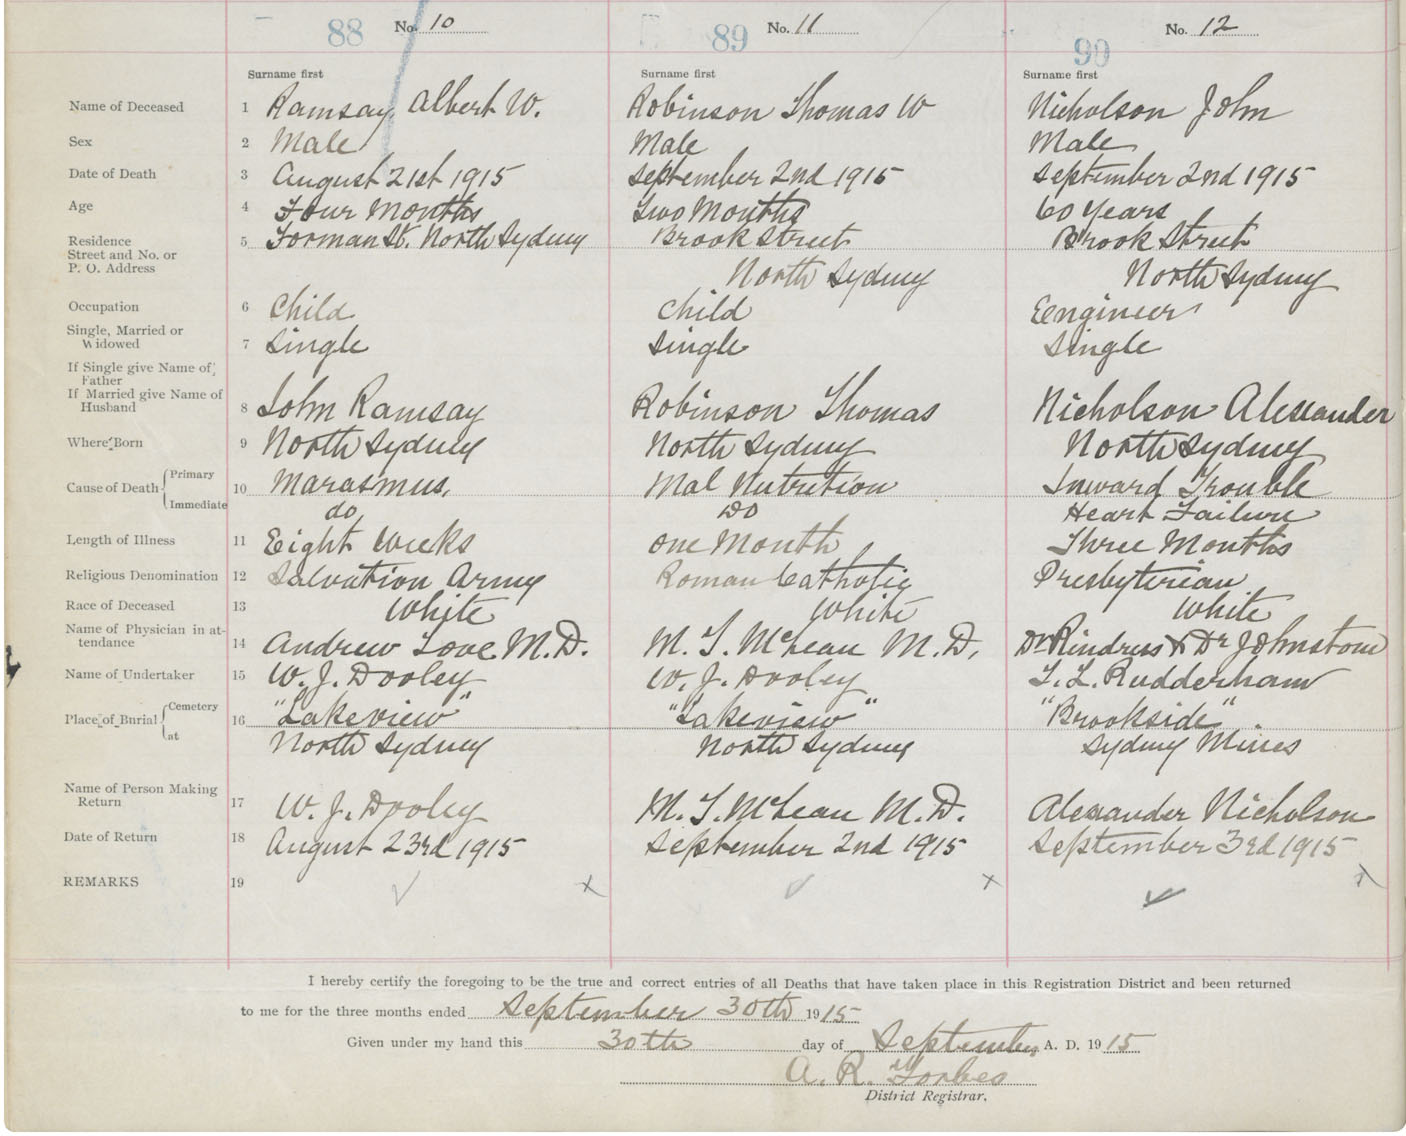 88 No. 10 89 No. 11 90 No. 12
Surname first Surname first Surname first
Name of Deceased 1 Ramsay, Albert W. Robinson Thomas W Nicholson John
Sex 2 Male Male Male
Date of Death 3 August 21st 1915 September 2nd 1915 September 2nd 1915
Age 4 Four Months Two Months 60 Years
Residence
Street and No. or
P. O. Address
5 Forman St. North Sydney Brook Street Brook Street
North Sydney North Sydney
Occupation 6 Child Child Eengineer
Single, Married or
Widowed 7 Single Single Single
If Single give Name of
Father
If Married give Name of
Husband 8 John Ramsay Robinson Thomas Nicholson Alexander
Where Born 9 North Sydney North Sydney North Sydney
Cause of Death Primary 10 Marasmus, Mal Nutrition Inward Trouble
Immediate do Do Heart Failure
Length of Illness 11 Eight Weeks One Month Three Months
Religious Denomination 12 Salvation Army Roman Catholic Presbyterian
Race of Deceased 13 White White White
Name of Physician in at-
tendance 14 Andrew Love M.D. M. T. McLean M.D. Dr Rindress & Dr Johnstone
Name of Undertaker 15 W. J. Dooley W. J. Dooley T. L. Rudderham
Place of Burial Cemetery 16 "Lakeview" "Lakeview" "Brookside"
at North Sydney North Sydney Sydney Mines
Name of Person Making
Return 17 W. J. Dooley M. T. McLean M.D. Alexander Nicholson
Date of Return 18 August 23rd 1915 September 2nd 1915 September 3rd 1915
REMARKS 19 ✓ x ✓ x ✓ x
I hereby certify the foregoing to be the true and correct entries of all Deaths that have taken place in this Registration District and been returned
to me for the three months ended September 30th 1915
Given under my hand this 30th day of September A. D. 1915
A. R. Forbes
District Registrar.